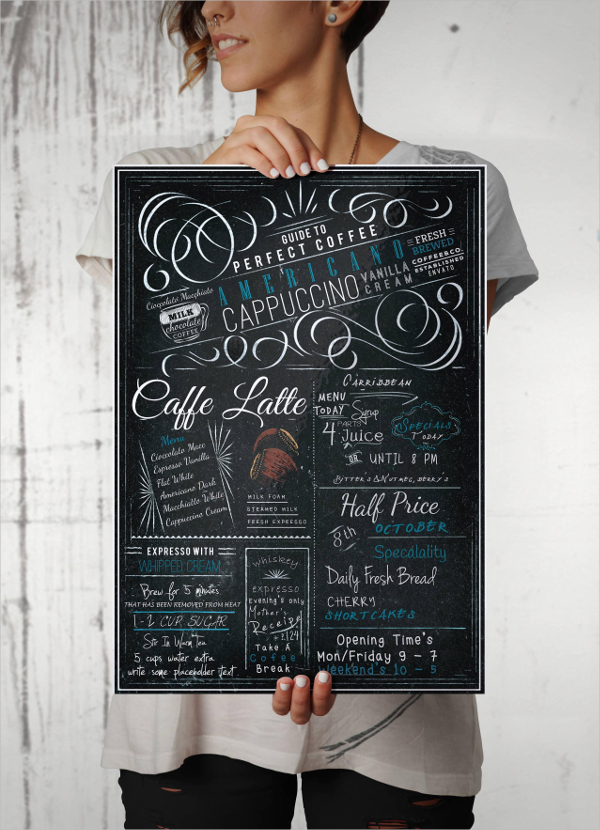 GUIDE TO
PERFECT COFFEE
AMERICANO
CAPPUCCINO
VANILLA
CREAM
FRESH
BREWED
COFFEE CO.
ESTABLISHED
ENVATO
Cioccolato Macchiato
MILK
chocolate
COFFEE
Caffe Latte
Menu
Cioccolato Macc
Espresso Vanilla
Flat White
Americano Dark
Macchiatto White
Cappuccino Cream
MILK FOAM
STEAMED MILK
FRESH EXPRESSO
CARRIBBEAN
MENU
TODAY
Syrup
4 PARTS
Juice
SPECIALS
TODAY
OR UNTIL 8 PM
BITTER'S & NUTMEG, BERRY'S
Half Price
8th
OCTOBER
Specalality
Daily Fresh Bread
CHERRY
SHORTCAKES
Opening Time's
Mon/Friday 9 - 7
Weekend's 10 - 5
EXPRESSO WITH
WHIPPED CREAM
Brew for 5 minutes
THAT HAS BEEN REMOVED FROM HEAT
1-2 CUP SUGAR
Stir In Warm Tea
5 cups water extra
write some placeholder text
whiskey
expresso
Evening's only
Mother's
Receipe
2/24
Take A
Cofee
Break